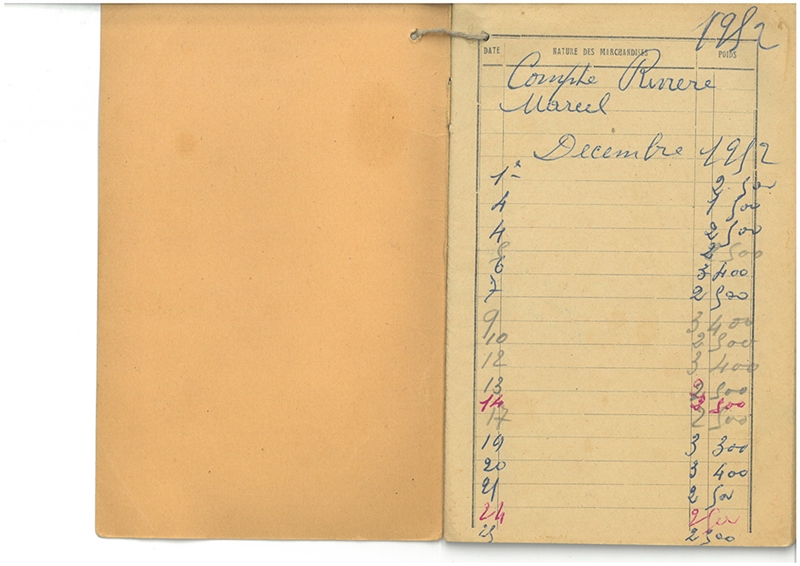 1952
DATE NATURE DES MARCHANDISES POIDS
Compte Riviere
Marcel
Decembre 1952
1e 2 500
4 1 500
4 2 500
500
6 3 400
7 2 500
9 3 400
10 2 500
12 3 400
13 2 500
14 2 500
17 2 500
19 3 300
20 3 400
21 2 500
24 2 500
2 500